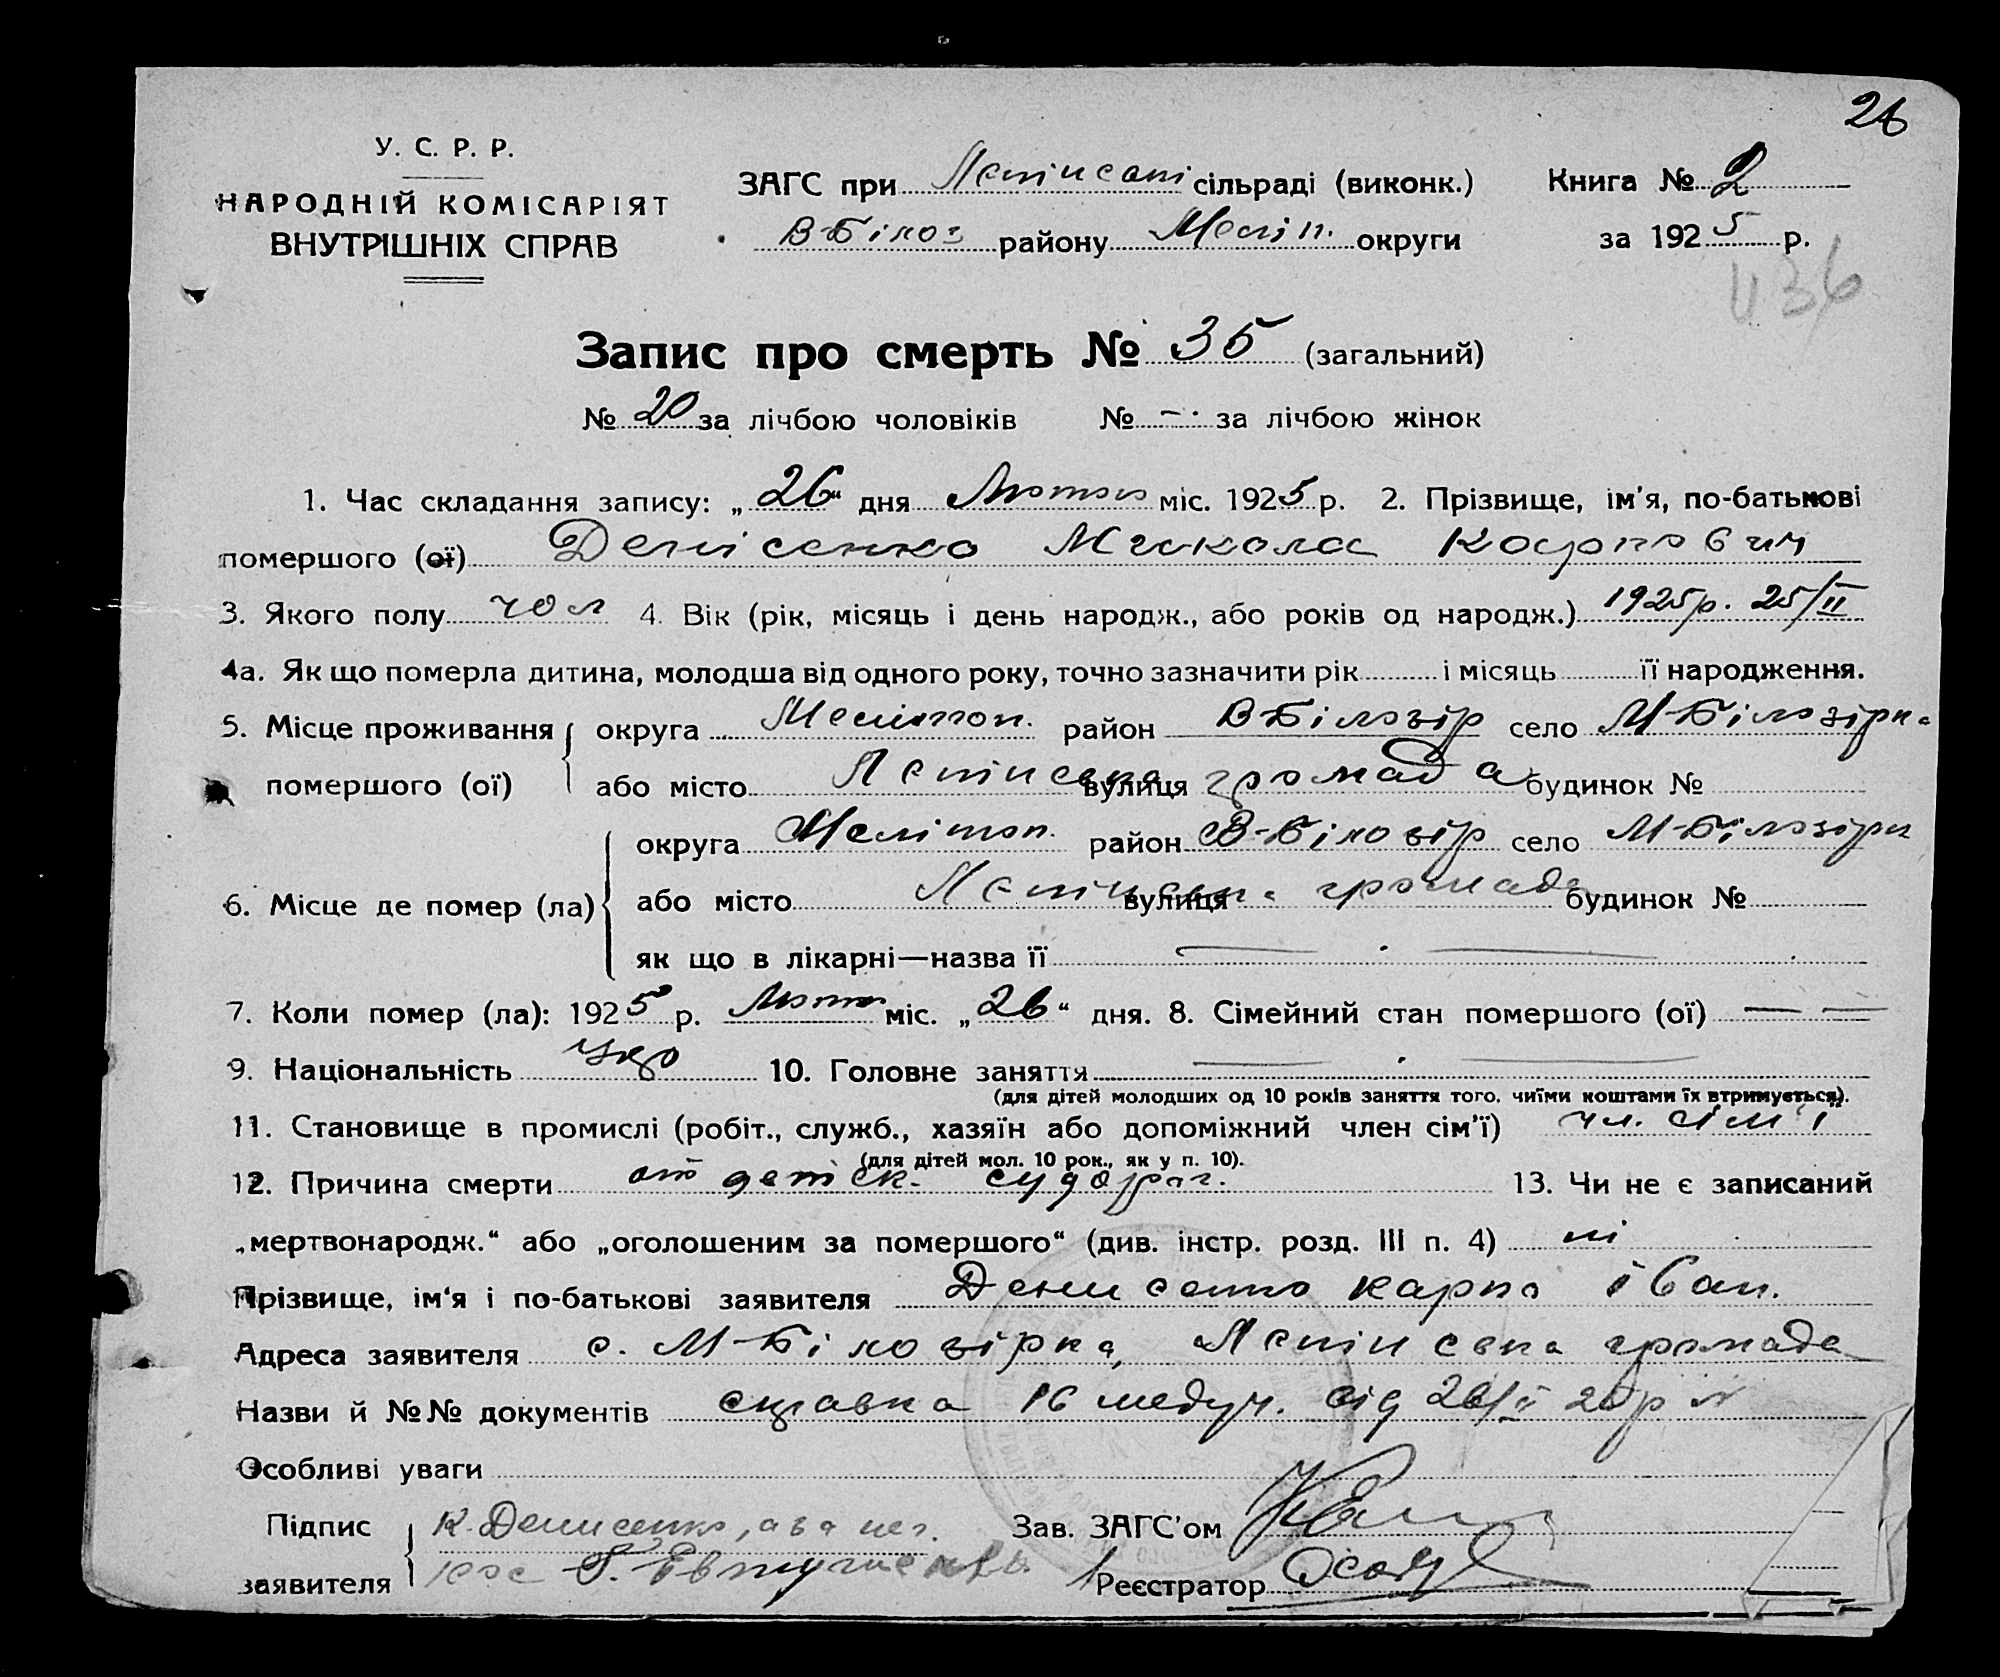 26
У. С. Р. Р.
НАРОДНІЙ КОМІСАРІЯТ
ВНУТРІШНІХ СПРАВ
ЗАГС при сільраді (виконк.)
В-Білоз району Меліт. округи
Книга № 2
за 1925 р.
436
Запис про смерть № 35 (загальний)
№ 20 за лічбою чоловіків № — за лічбою жінок
1. Час складання запису: „26“ дня Лютого міс. 1925 р. 2. Прізвище, ім'я, по-батькові
помершого (ої) Денісенко Микола Карпович
3. Якого полу чол 4. Вік (рік, місяць і день народж., або років од народж.) 1925р. 25/II
4а. Як що померла дитина, молодша від одного року, точно зазначити рік і місяць її народження.
5. Місце проживання округа Мелітоп. район В-Білозір село М-Білозірка
помершого (ої) або місто вулиця громада будинок №
округа Мелітоп. район В-Білозір село М-Білозірк
6. Місце де помер (ла) або місто вулиця громада будинок №
як що в лікарні—назва її —
7. Коли помер (ла): 1925 р. Лютого міс. „26“ дня. 8. Сімейний стан помершого (ої) — —
9. Національність Укр 10. Головне заняття —
(для дітей молодших од 10 років заняття того, чиїми коштами їх втримується).
11. Становище в промислі (робіт., служб., хазяїн або допоміжний член сім'ї) чл. сім'ї
(для дітей мол. 10 рок., як у п. 10).
12. Причина смерти от детіск. судораг. 13. Чи не є записаний
„мертвонародж.“ або „оголошеним за помершого“ (див. інстр. розд. III п. 4) ні
Прізвище, ім'я і по-батькові заявителя Денисенко Карпо Іван.
Адреса заявителя с. М-Білозірка, громада
Назви й №№ документів справка 16 медуч. від 26/II 25р
Особливі уваги
Підпис К. Денисенко, а за нег.
заявителя
Зав. ЗАГС'ом
Реєстратор